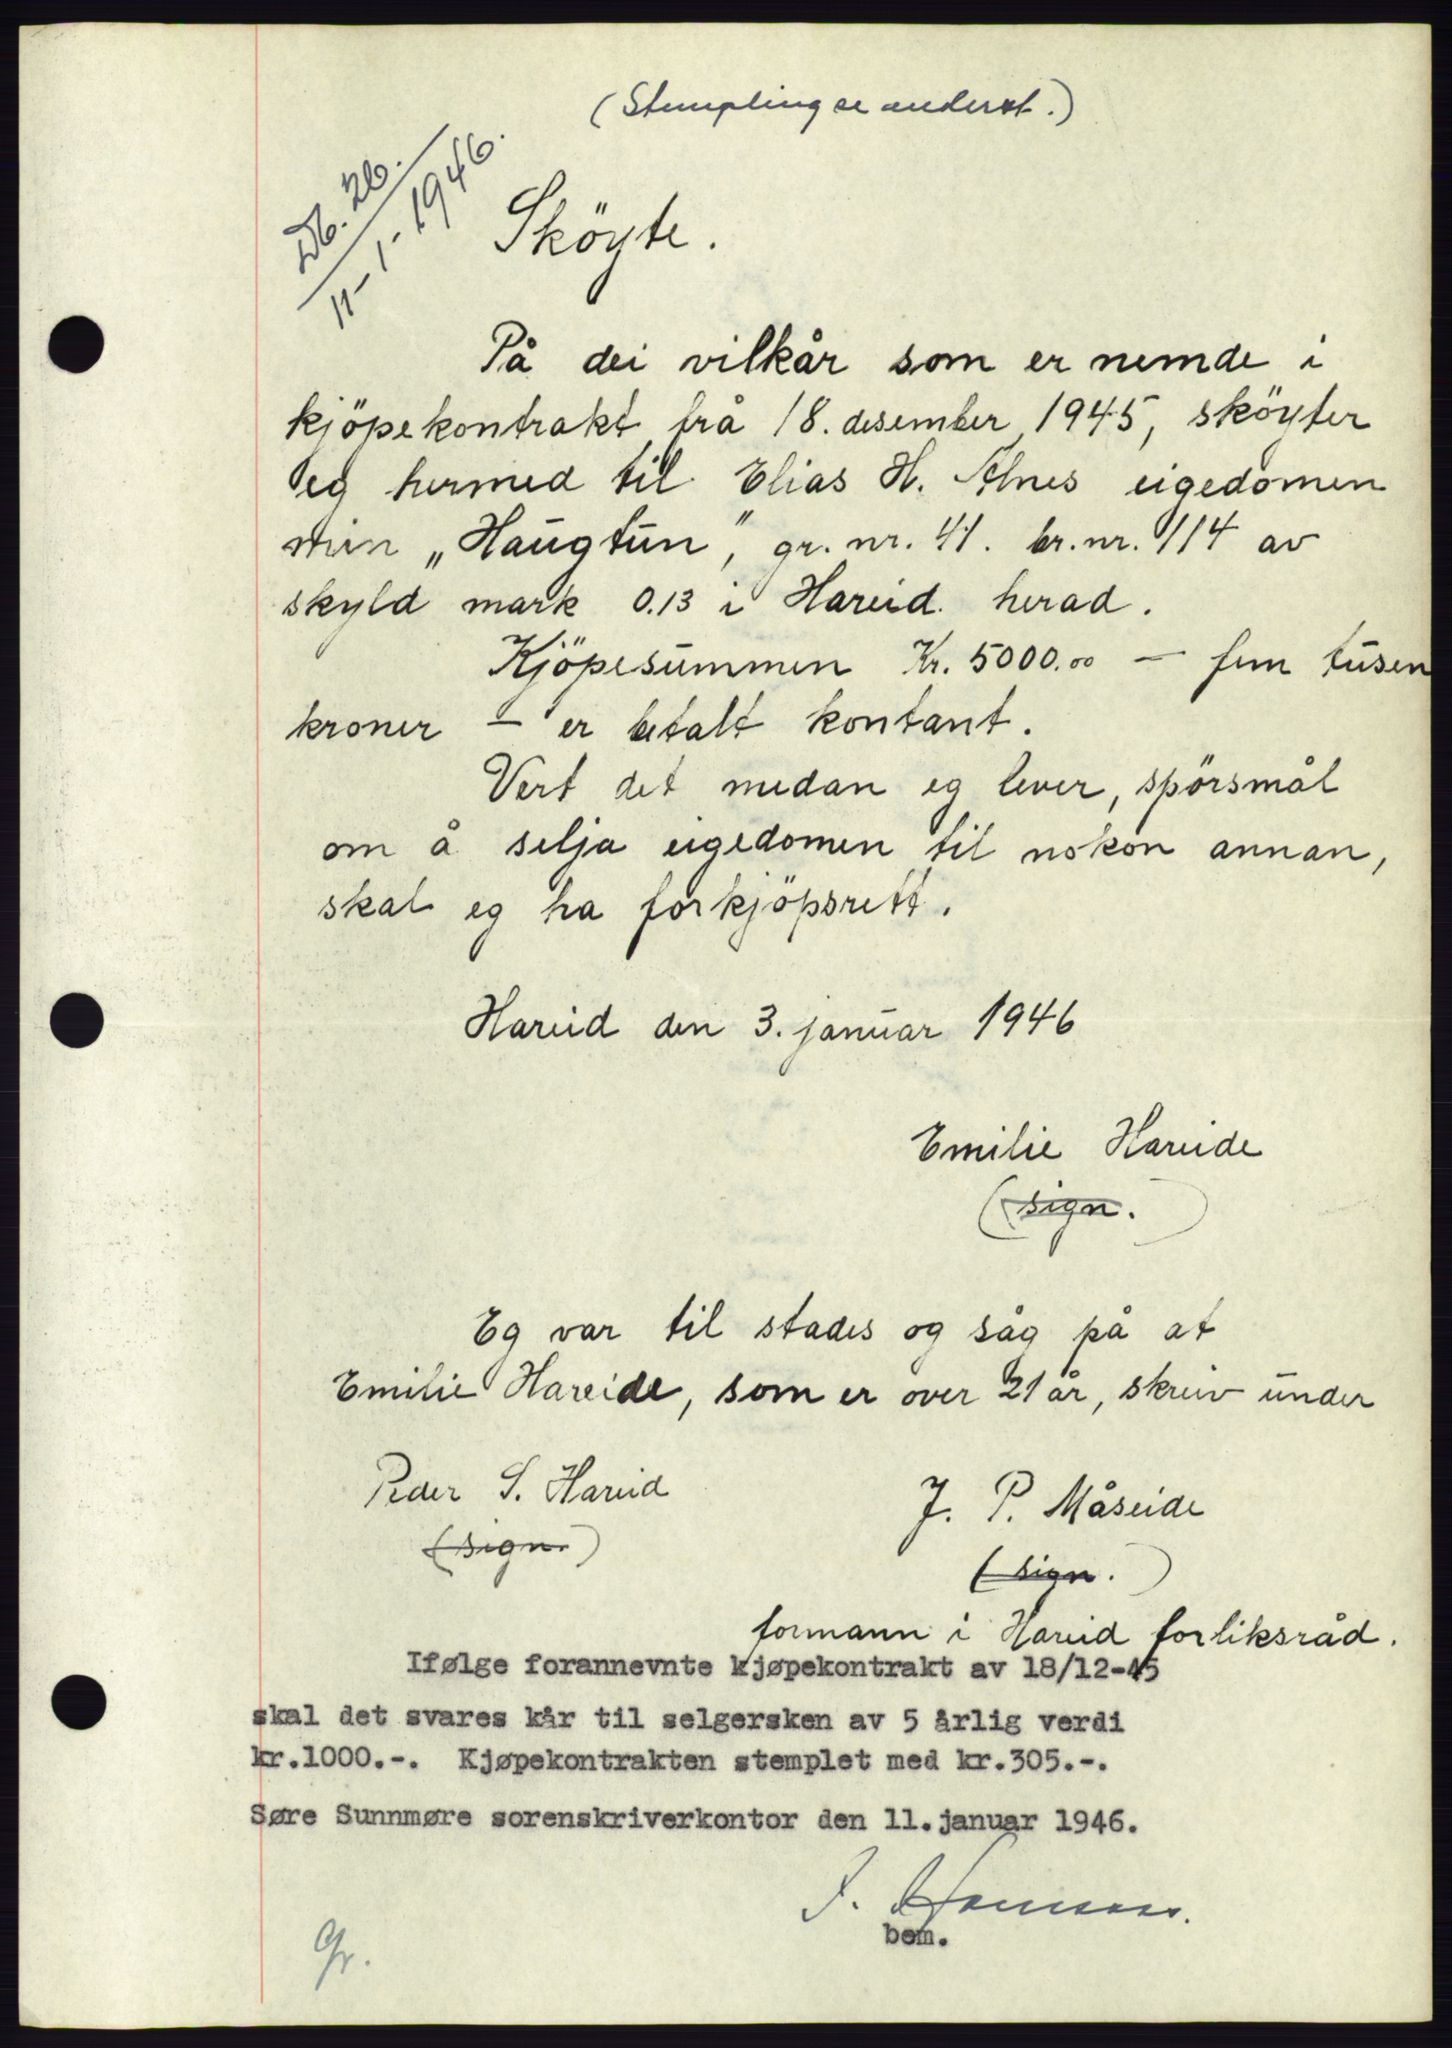 (Stempling se nederst.)
Db. 26.
11-1-1946.
Sköyte.
På dei vilkår som er nemde i
kjöpekontrakt frå 18. desember 1945, sköyter
eg hermed til Elias H. Alnes eigedomen
min „Haugtun", gr. nr. 41. br. nr. 114 av
skyld mark 0.13 i Hareid herad.
Kjöpesummen Kr. 5000.00 — fem tusen
kroner — er betalt kontant.
Vert det medan eg lever, spörsmål
om å selja eigedomen til nokon annan,
skal eg ha forkjöpsrett.
Hareid den 3. januar 1946
Emilie Hareide
(sign.)
Eg var til stades og såg på at
Emilie Hareide, som er over 21 år, skreiv under
Peder S. Hareid
(sign.)
J. P. Måseide
(sign.)
formann i Hareid forliksråd.
Ifølge forannevnte kjøpekontrakt av 18/12-45
skal det svares kår til selgersken av 5 årlig verdi
kr.1000.-. Kjøpekontrakten stemplet med kr.305.-.
Søre Sunnmøre sorenskriverkontor den 11.januar 1946.
bem.
Gr.